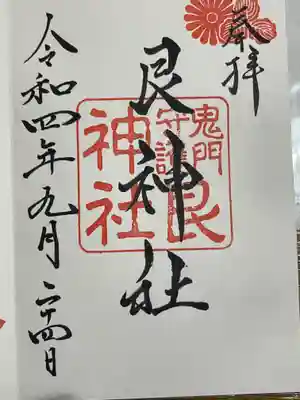 奉拝
艮神社
鬼門
守護
艮
神社
令和四年九月二十四日